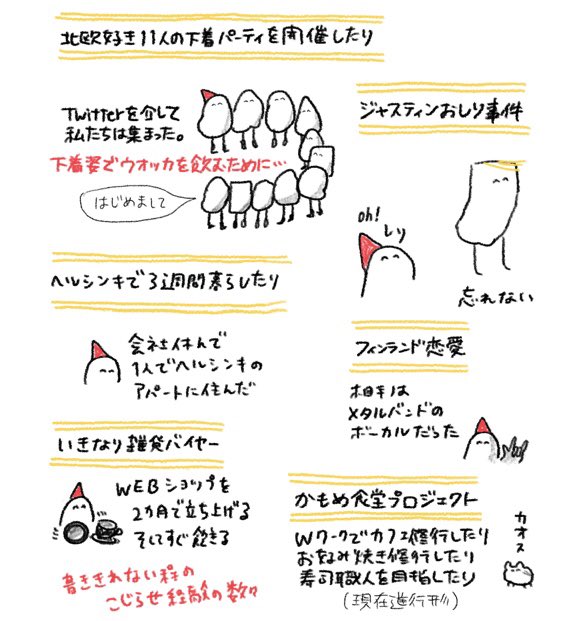 北欧好き11人の下着パーティを開催したり
Twitterを介して
私たちは集まった。
下着姿でウオッカを飲むために…
はじめまして
ジャスティンおしり事件
oh!
しり
忘れない
ヘルシンキで3週間暮らしたり
会社休んで
1人でヘルシンキの
アパートに住んだ
フィンランド恋愛
相手は
メタルバンドの
ボーカルだった
いきなり雑貨バイヤー
WEBショップを
2カ月で立ち上げる
そしてすぐ飽きる
かもめ食堂プロジェクト
Wワークでカフェ修行したり
お好み焼き修行したり
寿司職人を目指したり
(現在進行形)
カオス
書ききれない程の
こじらせ経験の数々